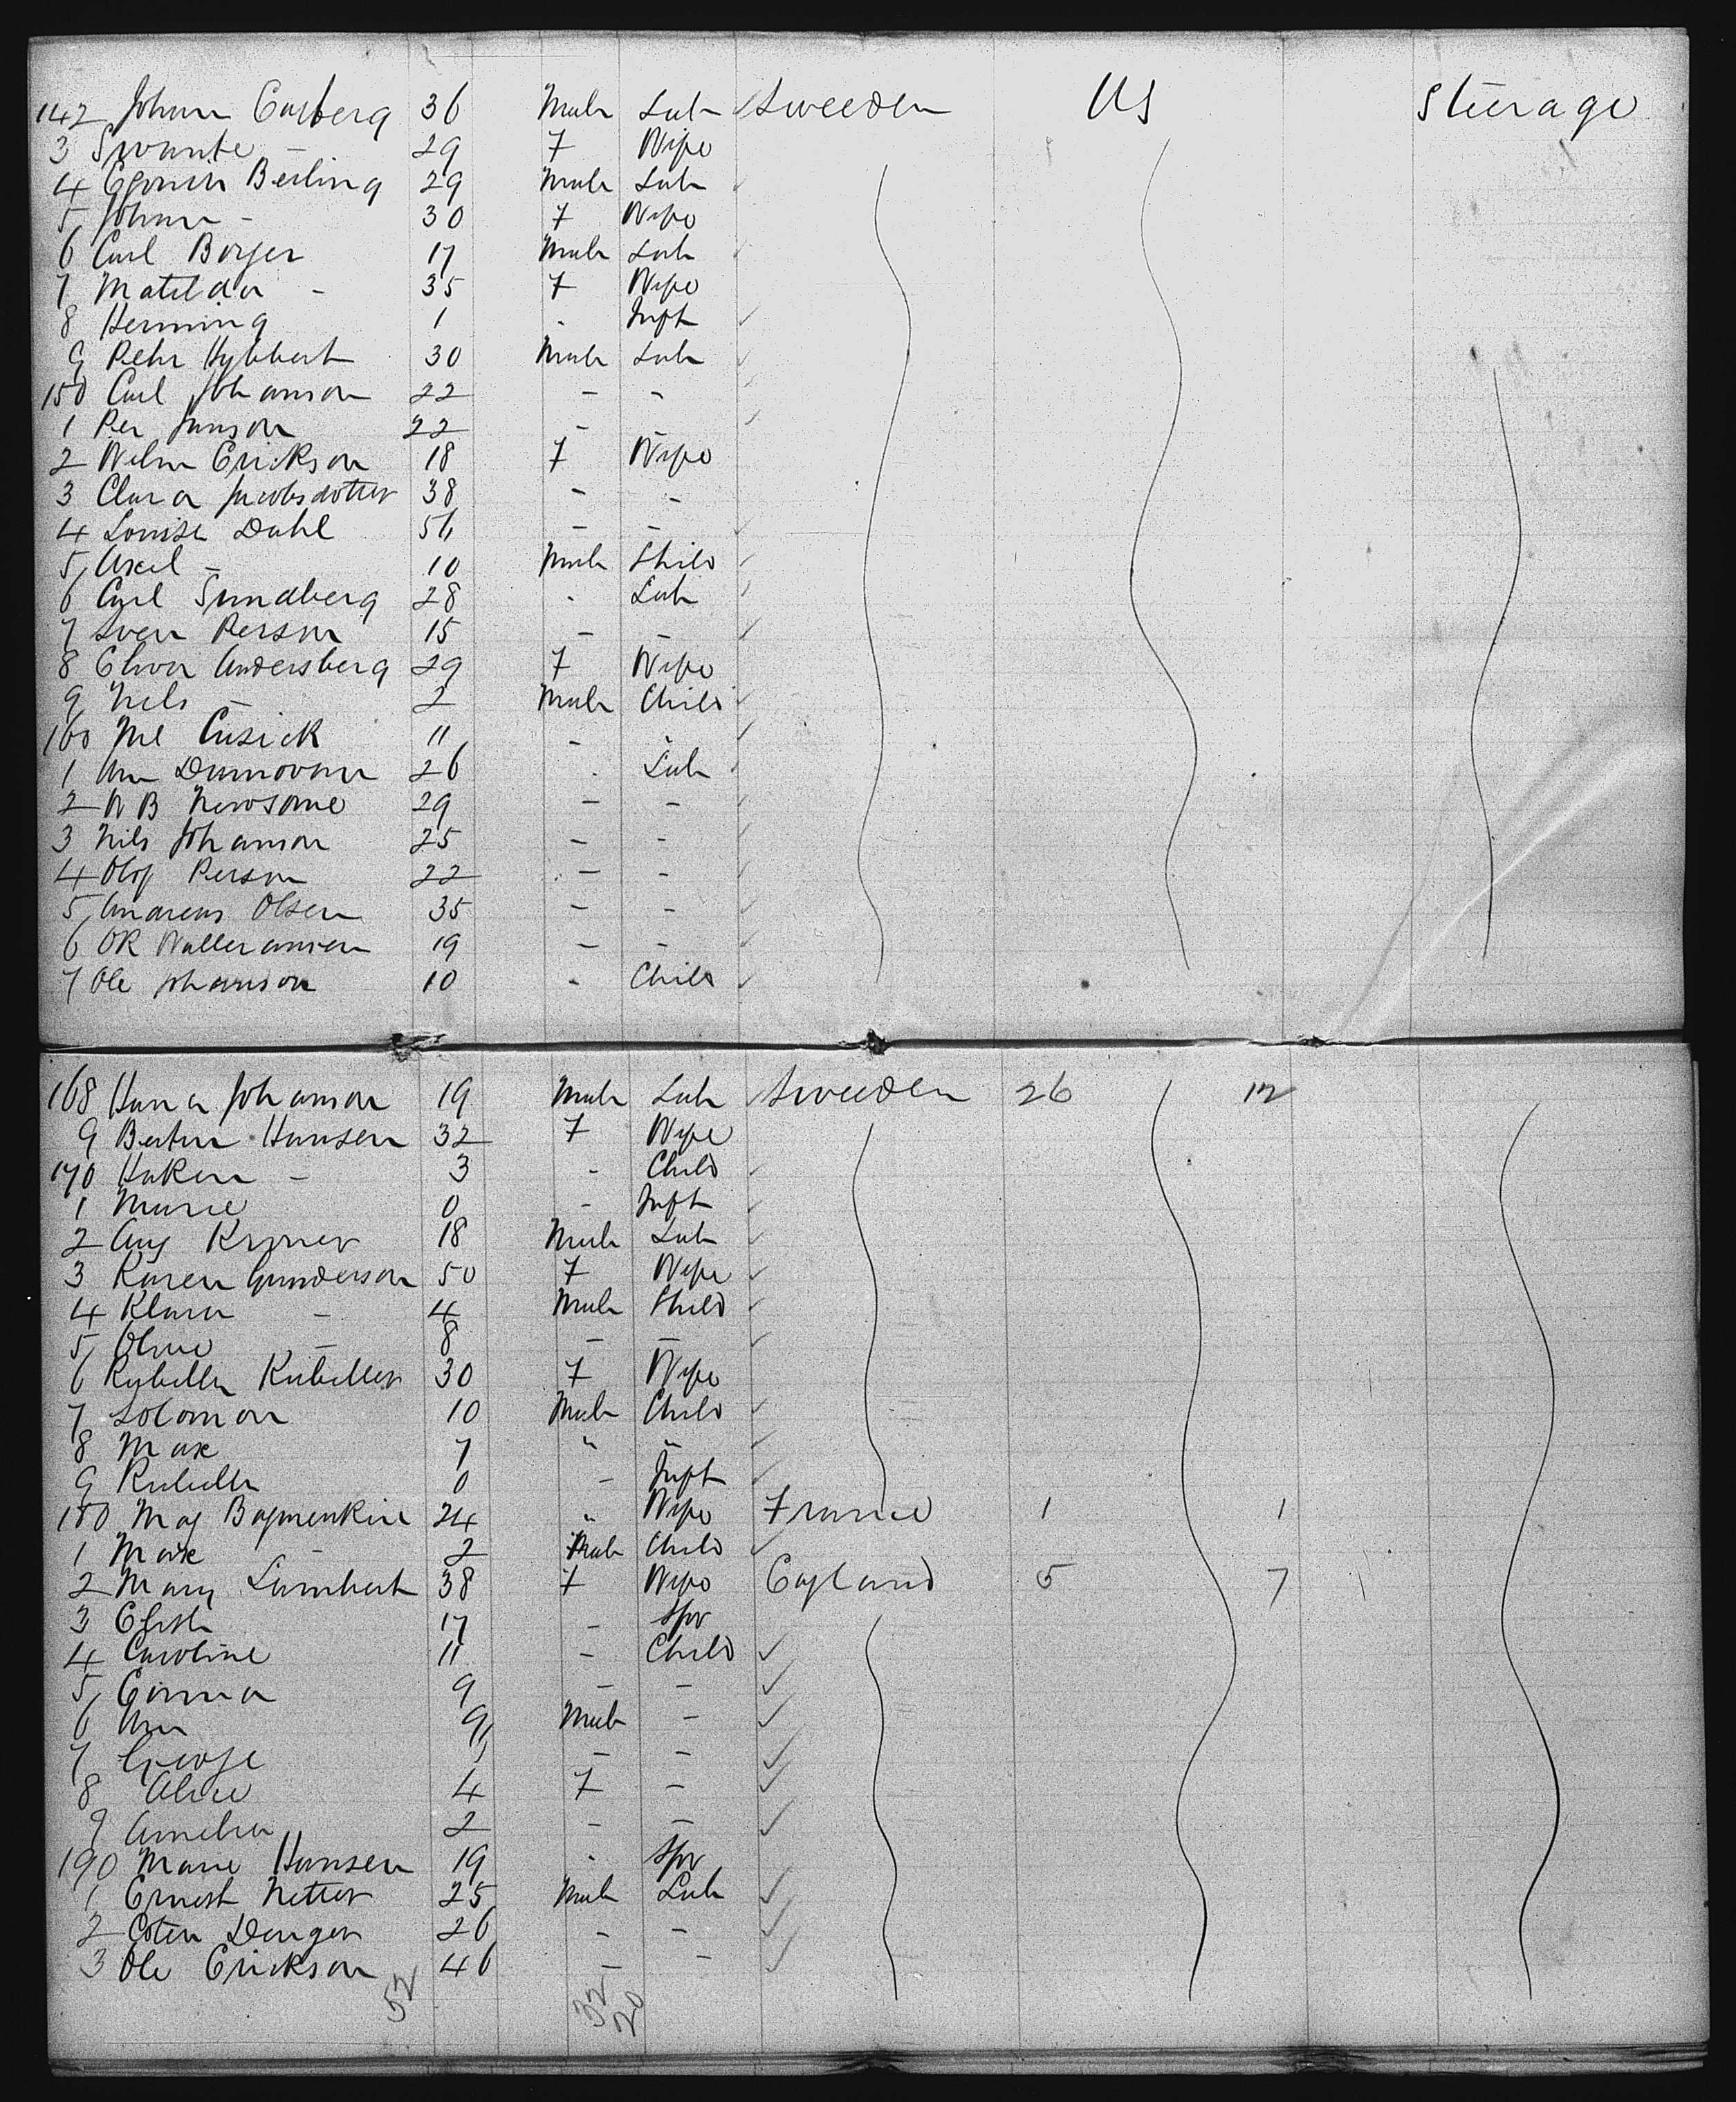 142 Johan Carlberg 36 Male Lab Sweeden US Steerage
3 Swante - 29 F Wife
4 Berling 29 Male Lab
5 Johan - 30 F Wife
6 Carl Borger 17 Male Lab
7 Matilda - 35 F Wife
8 Henning 1 - Inft
9 Pehr Hybbert 30 Male Lab
150 Carl Johanson 22 - -
1 Per Janson 22 - -
2 Wilm Erickson 18 F Wife
3 Clara Jacobsdotter 38 - -
4 Louise Dahl 56 - -
5 Axel - 10 Male Child
6 Carl Sundberg 28 - Lab
7 Sven Person 15 - -
8 Andersberg 29 F Wife
9 Nils - 2 Male Child
160 Ml Cusick 11 - "
1 Dunnovan 26 - Lab
2 W B Newsome 29 - -
3 Nils Johanson 25 - -
4 Olof Person 22 - -
5 Andreas Olsen 35 - -
6 OR 19 - -
7 Ole Johanson 10 - Child
168 Hana Johanson 19 Male Lab Sweeden 26 12
9 Hansen 32 F Wife
170 Haken - 3 - Child
1 Marie 0 - Inft
2 Aug 18 Male Lab
3 Karen Gunderson 50 F Wife
4 Klara - 4 Male Child
5 - 8 - -
6 30 F Wife
7 Solomon 10 Male Child
8 Max 7 " "
9 0 - Inft
180 24 " Wife France 1 1
1 Max 2 Male Child
2 Mary Lambert 38 F Wife England 5 7
3 17 - Spr
4 Caroline 11 - Child
5 Emma 9 - -
6 9 Male -
7 George - -
8 Alice 4 F -
9 Amelia 2 - -
190 Marie Hansen 19 - Spr
1 Ernest Netter 25 Male Lab
2 26 - -
3 Ole Erickson 46 - -
52 32
20